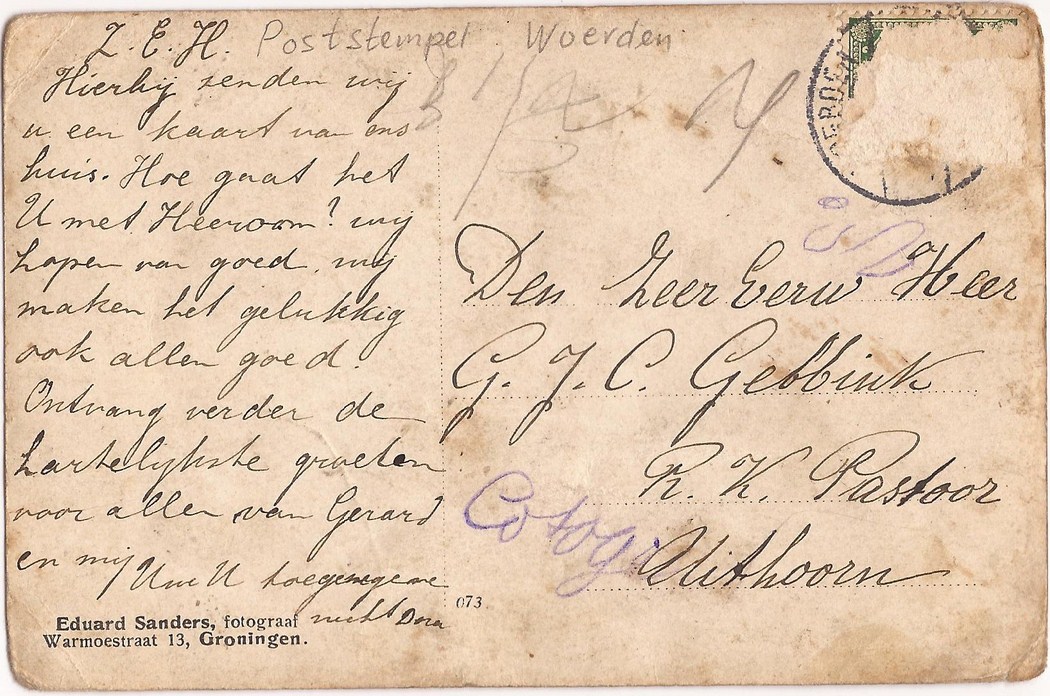 Z. E. H.
Poststempel Woerden
Hierbij zenden wij
u een kaart van ons
huis. Hoe gaat het
U met Heeroom? wij
hopen van goed. wij
maken het gelukkig
ook allen goed.
Ontvang verder de
hartelijkste groeten
voor allen van Gerard
en mij Uw U toegenegene
nicht Dora
Eduard Sanders, fotograaf
Warmoestraat 13, Groningen.
073
Den Zeer Eerw Heer
G. J. C. Gebbink
R. K. Pastoor
Uithoorn